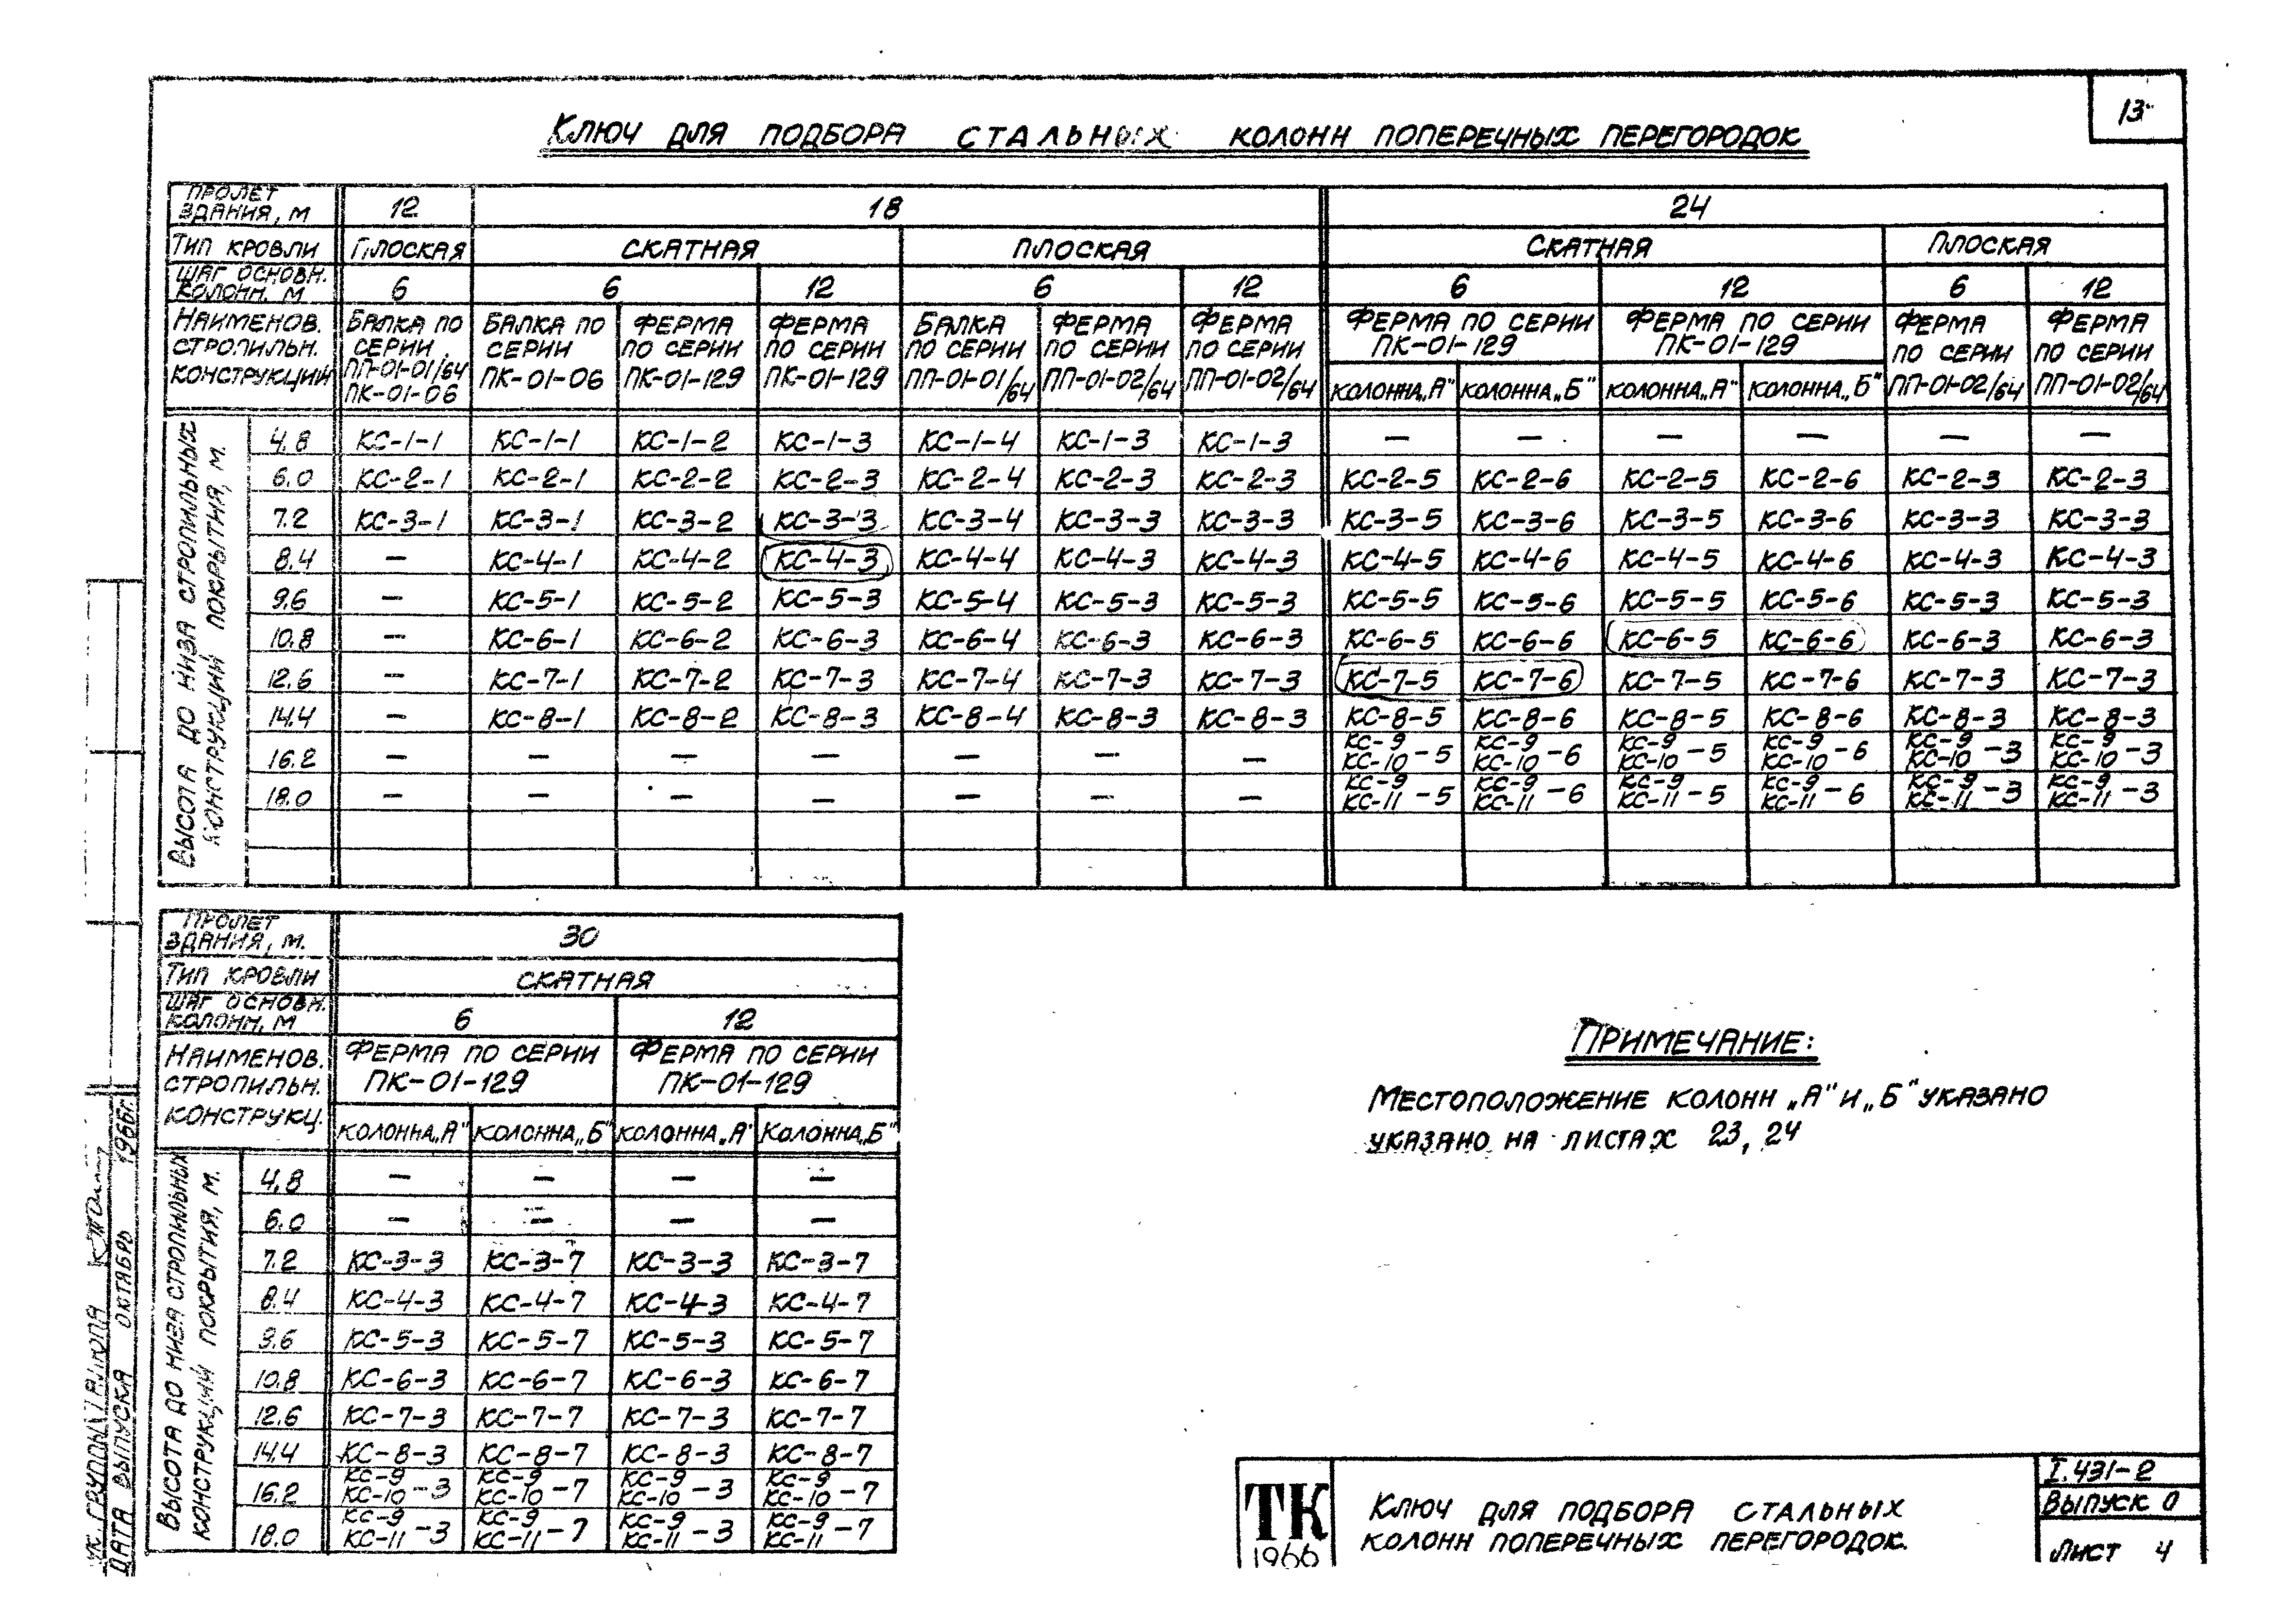 13
Ключ для подбора стальных колонн поперечных перегородок
Пролет здания, м 12 18 24
Тип кровли Плоская Скатная Плоская Скатная Плоская
Шаг основн. колонн. м 6 6 12 6 12 6 12 6 12
Наименов. стропильн. конструкций
Балка по серии ПП-01-01/64 ПК-01-06
Балка по серии ПК-01-06
Ферма по серии ПК-01-129
Ферма по серии ПК-01-129
Балка по серии ПП-01-01/64
Ферма по серии ПП-01-02/64
Ферма по серии ПП-01-02/64
Ферма по серии ПК-01-129
Ферма по серии ПК-01-129
Ферма по серии ПП-01-02/64
Ферма по серии ПП-01-02/64
колонна „А" колонна „Б" колонна „А" колонна „Б"
Высота до низа стропильных конструкций покрытия, м.
4.8 КС-1-1 КС-1-1 КС-1-2 КС-1-3 КС-1-4 КС-1-3 КС-1-3 — — — — — —
6.0 КС-2-1 КС-2-1 КС-2-2 КС-2-3 КС-2-4 КС-2-3 КС-2-3 КС-2-5 КС-2-6 КС-2-5 КС-2-6 КС-2-3 КС-2-3
7.2 КС-3-1 КС-3-1 КС-3-2 КС-3-3 КС-3-4 КС-3-3 КС-3-3 КС-3-5 КС-3-6 КС-3-5 КС-3-6 КС-3-3 КС-3-3
8.4 — КС-4-1 КС-4-2 КС-4-3 КС-4-4 КС-4-3 КС-4-3 КС-4-5 КС-4-6 КС-4-5 КС-4-6 КС-4-3 КС-4-3
9.6 — КС-5-1 КС-5-2 КС-5-3 КС-5-4 КС-5-3 КС-5-3 КС-5-5 КС-5-6 КС-5-5 КС-5-6 КС-5-3 КС-5-3
10.8 — КС-6-1 КС-6-2 КС-6-3 КС-6-4 КС-6-3 КС-6-3 КС-6-5 КС-6-6 КС-6-5 КС-6-6 КС-6-3 КС-6-3
12.6 — КС-7-1 КС-7-2 КС-7-3 КС-7-4 КС-7-3 КС-7-3 КС-7-5 КС-7-6 КС-7-5 КС-7-6 КС-7-3 КС-7-3
14.4 — КС-8-1 КС-8-2 КС-8-3 КС-8-4 КС-8-3 КС-8-3 КС-8-5 КС-8-6 КС-8-5 КС-8-6 КС-8-3 КС-8-3
КС-9 КС-9 КС-9 КС-9 КС-9 КС-9
16.2 — — — — — — — КС-10 -5 КС-10 -6 КС-10 -5 КС-10 -6 КС-10 -3 КС-10 -3
КС-9 КС-9 КС-9 КС-9 КС-9 КС-9
18.0 — — — — — — — КС-11 -5 КС-11 -6 КС-11 -5 КС-11 -6 КС-11 -3 КС-11 -3
Пролет здания, м. 30
Тип кровли Скатная
Шаг основн. колонн, м 6 12
Наименов. стропильн. конструкц.
Ферма по серии ПК-01-129
Ферма по серии ПК-01-129
колонна „А" колонна „Б" колонна „А" колонна „Б"
Высота до низа стропильных конструкций покрытия, м.
4.8 — — — —
6.0 — — — —
7.2 КС-3-3 КС-3-7 КС-3-3 КС-3-7
8.4 КС-4-3 КС-4-7 КС-4-3 КС-4-7
9.6 КС-5-3 КС-5-7 КС-5-3 КС-5-7
10.8 КС-6-3 КС-6-7 КС-6-3 КС-6-7
12.6 КС-7-3 КС-7-7 КС-7-3 КС-7-7
14.4 КС-8-3 КС-8-7 КС-8-3 КС-8-7
КС-9 КС-9 КС-9 КС-9
16.2 КС-10 -3 КС-10 -7 КС-10 -3 КС-10 -7
КС-9 КС-9 КС-9 КС-9
18.0 КС-11 -3 КС-11 -7 КС-11 -3 КС-11 -7
Примечание:
Местоположение колонн „А" и „Б" указано
указано на листах 23, 24
Дата выпуска октябрь 1966г.
ТК
1966
Ключ для подбора стальных
колонн поперечных перегородок.
I.431-2
Выпуск 0
Лист 4